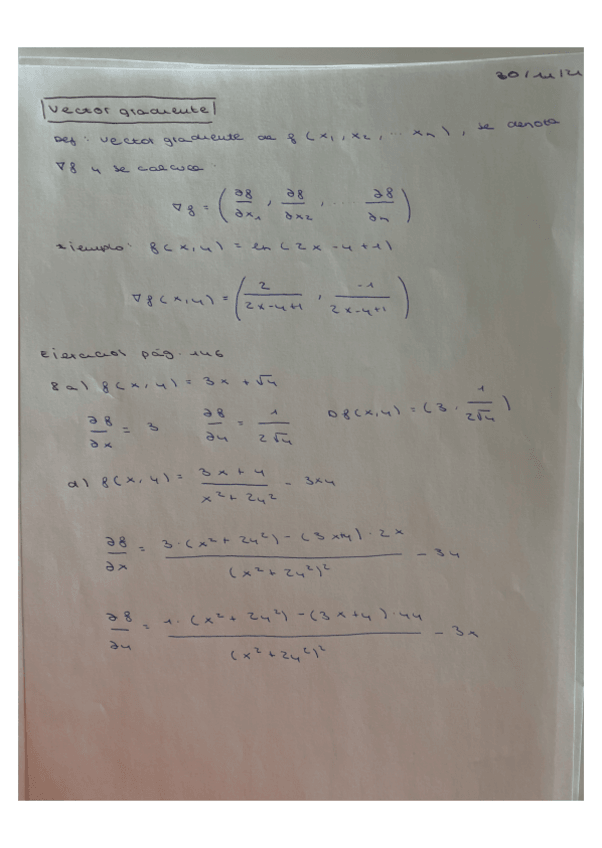 30/11/21
Vector gradiente
Def: vector gradiente de f(x₁, x₂, ... xₙ), se denota
∇f y se calcula:
∇f = (∂f/∂x₁, ∂f/∂x₂, ... ∂f/∂n)
ejemplo: f(x,y) = ln(2x - y + 1)
∇f(x,y) = (2/(2x-y+1), -1/(2x-y+1))
Ejercicios pág. 146
8 a) f(x,y) = 3x + √y
∂f/∂x = 3 ∂f/∂y = 1/(2√y) ∇f(x,y) = (3, 1/(2√y))
d) f(x,y) = (3x+y)/(x²+2y²) - 3xy
∂f/∂x = (3·(x²+2y²) - (3x+y)·2x)/(x²+2y²)² - 3y
∂f/∂y = (1·(x²+2y²) - (3x+y)·4y)/(x²+2y²)² - 3x